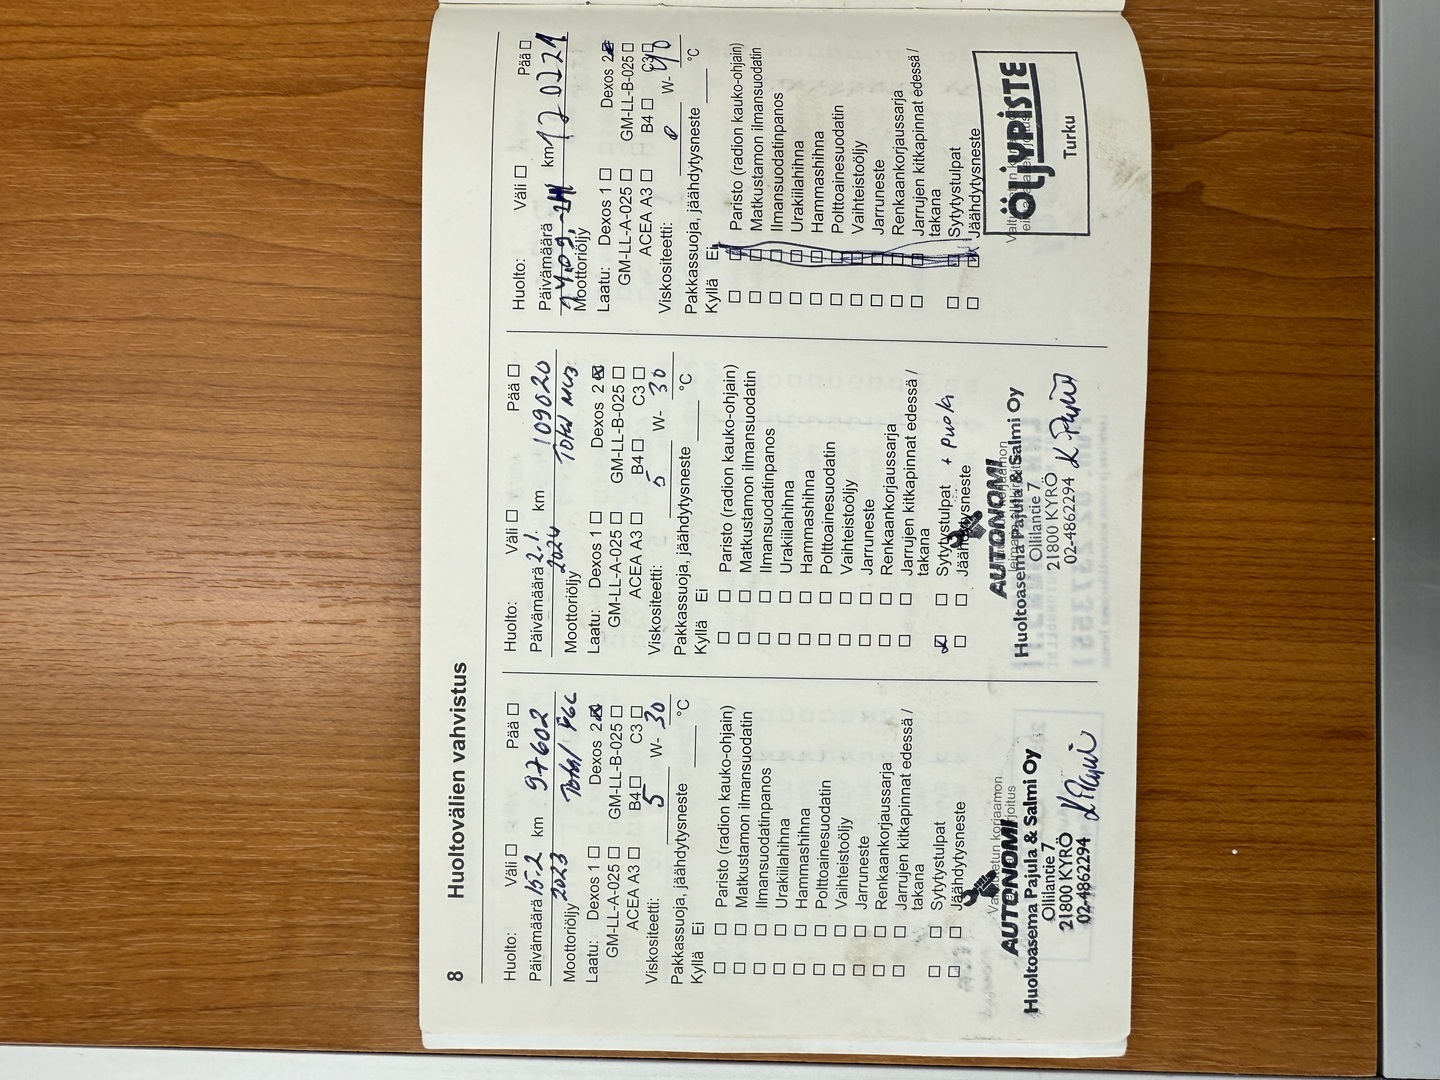 8 Huoltovälien vahvistus
Huolto: Väli Pää
Päivämäärä 15.2 km 97602
2023 Total FGC
Moottoriöljy
Laatu: Dexos 1 Dexos 2
GM-LL-A-025 GM-LL-B-025
ACEA A3 B4 C3
Viskositeetti: 5 W- 30
Pakkassuoja, jäähdytysneste °C
Kyllä Ei
Paristo (radion kauko-ohjain)
Matkustamon ilmansuodatin
Ilmansuodatinpanos
Urakiilahihna
Hammashihna
Polttoainesuodatin
Vaihteistoöljy
Jarruneste
Renkaankorjaussarja
Jarrujen kitkapinnat edessä /
takana
Sytytystulpat
Jäähdytysneste
AUTONOMI
Huoltoasema Pajula & Salmi Oy
Ollilantie 7
21800 KYRÖ
02-4862294
Huolto: Väli Pää
Päivämäärä 2.1. km 109020
2024 Total
Moottoriöljy
Laatu: Dexos 1 Dexos 2
GM-LL-A-025 GM-LL-B-025
ACEA A3 B4 C3
Viskositeetti: 5 W- 30
Pakkassuoja, jäähdytysneste °C
Kyllä Ei
Paristo (radion kauko-ohjain)
Matkustamon ilmansuodatin
Ilmansuodatinpanos
Urakiilahihna
Hammashihna
Polttoainesuodatin
Vaihteistoöljy
Jarruneste
Renkaankorjaussarja
Jarrujen kitkapinnat edessä /
takana
Sytytystulpat + Puola
Jäähdytysneste
AUTONOMI
Huoltoasema Pajula & Salmi Oy
Ollilantie 7
21800 KYRÖ
02-4862294
Huolto: Väli Pää
Päivämäärä km 120221
Moottoriöljy
Laatu: Dexos 1 Dexos 2
GM-LL-A-025 GM-LL-B-025
ACEA A3 B4 C3
Viskositeetti: 0 W-
Pakkassuoja, jäähdytysneste °C
Kyllä Ei
Paristo (radion kauko-ohjain)
Matkustamon ilmansuodatin
Ilmansuodatinpanos
Urakiilahihna
Hammashihna
Polttoainesuodatin
Vaihteistoöljy
Jarruneste
Renkaankorjaussarja
Jarrujen kitkapinnat edessä /
takana
Sytytystulpat
Jäähdytysneste
ÖLJYPISTE
Turku